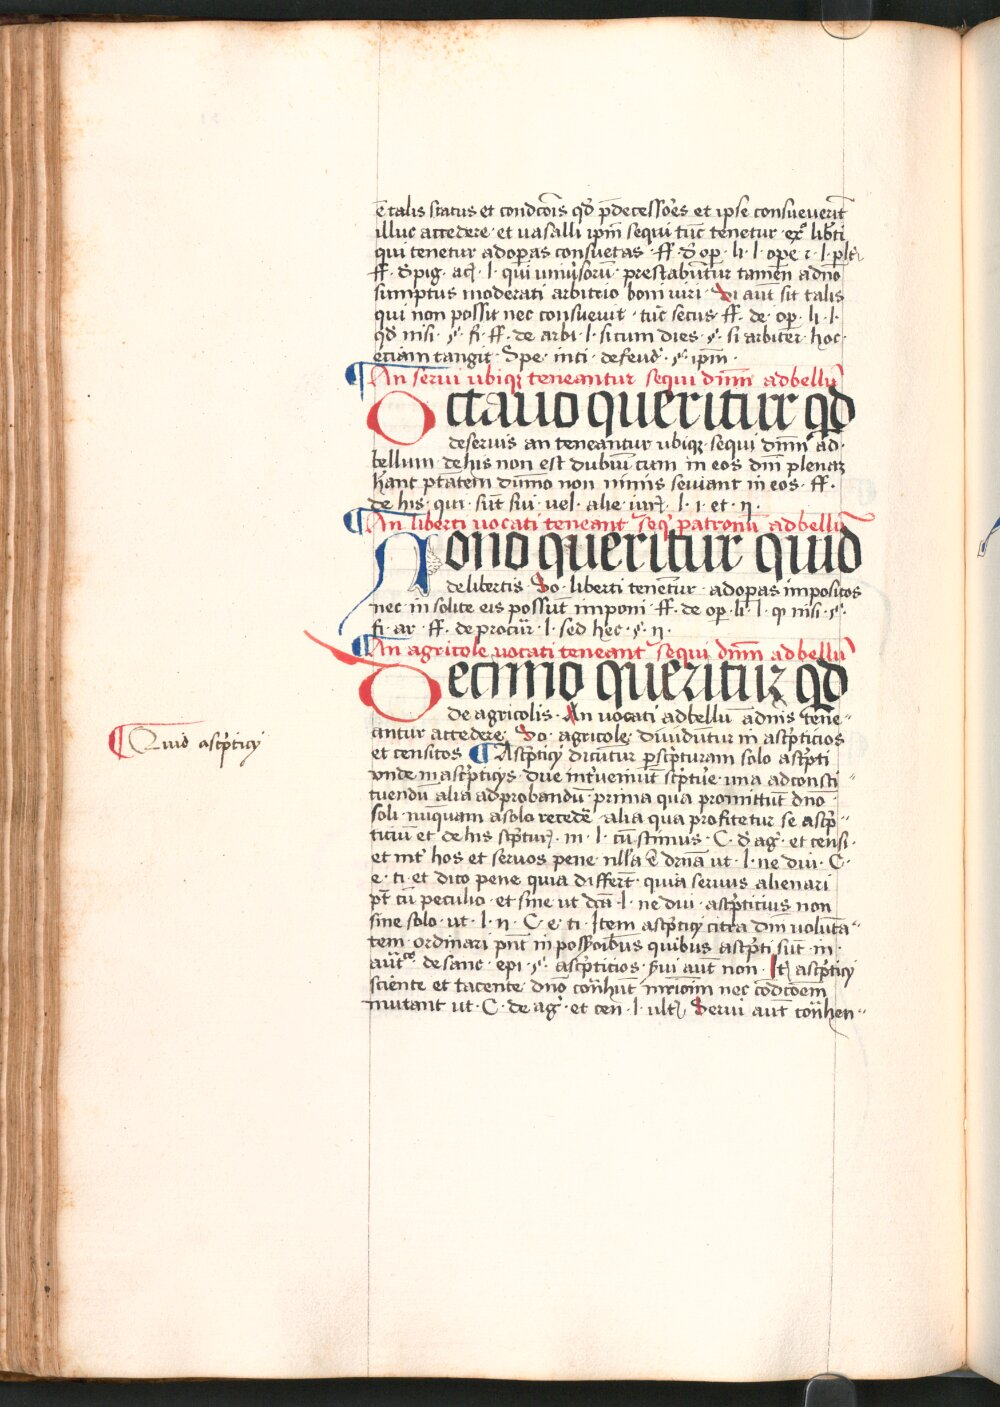 ē talis status et condcōis qđ p̄decessōes et ipse consueuerīt
illuc accedere · et uasalli ipm̄ sequi tūc tenetur · exº lib̄ti
qui tenetur ad opas consuetas · ff · đ op · li · l · ope
ff · đ pig · act · l · qui uniūsorū · prestabūtur tamen ad nō
sumptus moderati arbitrio boni uiri · Si aūt sit talis
qui non possit nec consueuit · tūc secus ff · de · op · li · l ·
qđ nisi · §· fi · ff · de arbi · l · si cum dies · §· si arbiter · hoc ·
etiam tangit · Spe · in ti · de feud̄ · §· ipm̄ ·
¶ An serui ubiqꝫ teneantur sequi dnm̄ ad bellū
Octauo queritur qđ
de seruis an teneantur ubiqꝫ sequi dnm̄ ad ·
bellum · de his non est dubiū cum in eos dm̄ plenaꝫ
hant ptātem dūmo non nimis seuiant in eos · ff ·
de his · qui · sūt sui · uel · alie · iur · l · i · et · ij ·
¶ An liberti uocati teneant seq̄ patronū ad bellū
Nono queritur quid
de libertis · So · liberti tenentur · ad opas impositos
nec in solite eis possūt imponi · ff · de op · li · l · qi nisi · §·
fi · ar · ff · de procur · l · sed hec · §· ij ·
¶ An agricole uocati teneant sequi dnm̄ ad bellū
Decimo queritur qđ
de agricolis · An uocati ad bellū adnis tene-
antur accedere · So · agricole diuidūtur in asc̄pticios
et censitos ¶ Asc̄pticij dicūtur p sc̄pturam solo asc̄pti
unde in asc̄pticijs · due int̄ueniūt sc̄ptue · una ad consti-
tuendū alia ad probandū · prima qua promittūt dnō
soli · nunquam a solo recedē · alia qua profitetur se asc̄p-
ticiū et de his sc̄ptur · in · l · cū scimus · C · đ ag · et censi ·
et int̄ hos et seruos pene nl̄la ē drn̄a ut · l · ne diu · C ·
e · ti · et dico pene quia differt · quia seruus alienari
pt̄ cū peculio · et sine ut dc̄a · l · ne diu · asc̄pticius non
sine solo · ut · l · ij · C · e · ti · Item asc̄pticij citra dni uolūta-
tem · ordinari pn̄t in possoībus quibus asc̄pti sūt · in ·
aut̄ · de sanc · epi · §· asc̄pticios · s̄ui aūt non · It asc̄pticij
sciēnte et tacente dnō cōnhūt mr̄ioīm nec cōdc̄oem
mutant ut · C · de ag · et cen · l · ult · Serui aūt cōnhen-
¶ Quid asc̄pticij